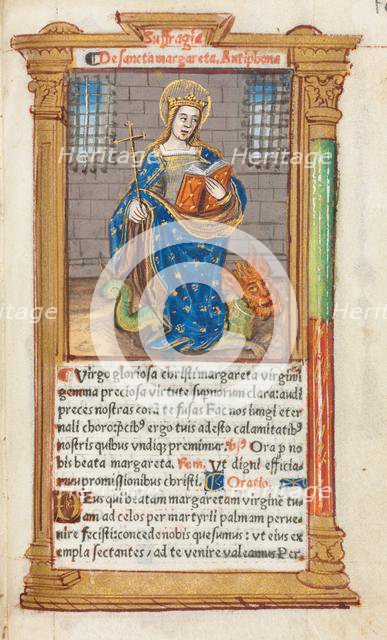 Suffragia
De sancta margareta. Antiphona
Virgo gloriosa christi: margareta virginū
gemma preciosa virtute supnorum clara: audi
preces nostras corā te fusas Fac nos iungi eter
nali choro: ꝓtcīs ergo tuis adesto calamitatibꝰ
nostris quibus vndiqꝫ premimur. Oꝛa p no
bis beata margareta. Ut digni efficia
mur promissionibus christi. Oratio.
Deus qui beatam margaretam virginē tu
am ad celos per martyrii palmam perue
nire fecisti: concede nobis quesumus: vt eius ex
empla sectantes / ad te venire valeamus Per
Heritage
Heritage
Heritage
Heritage